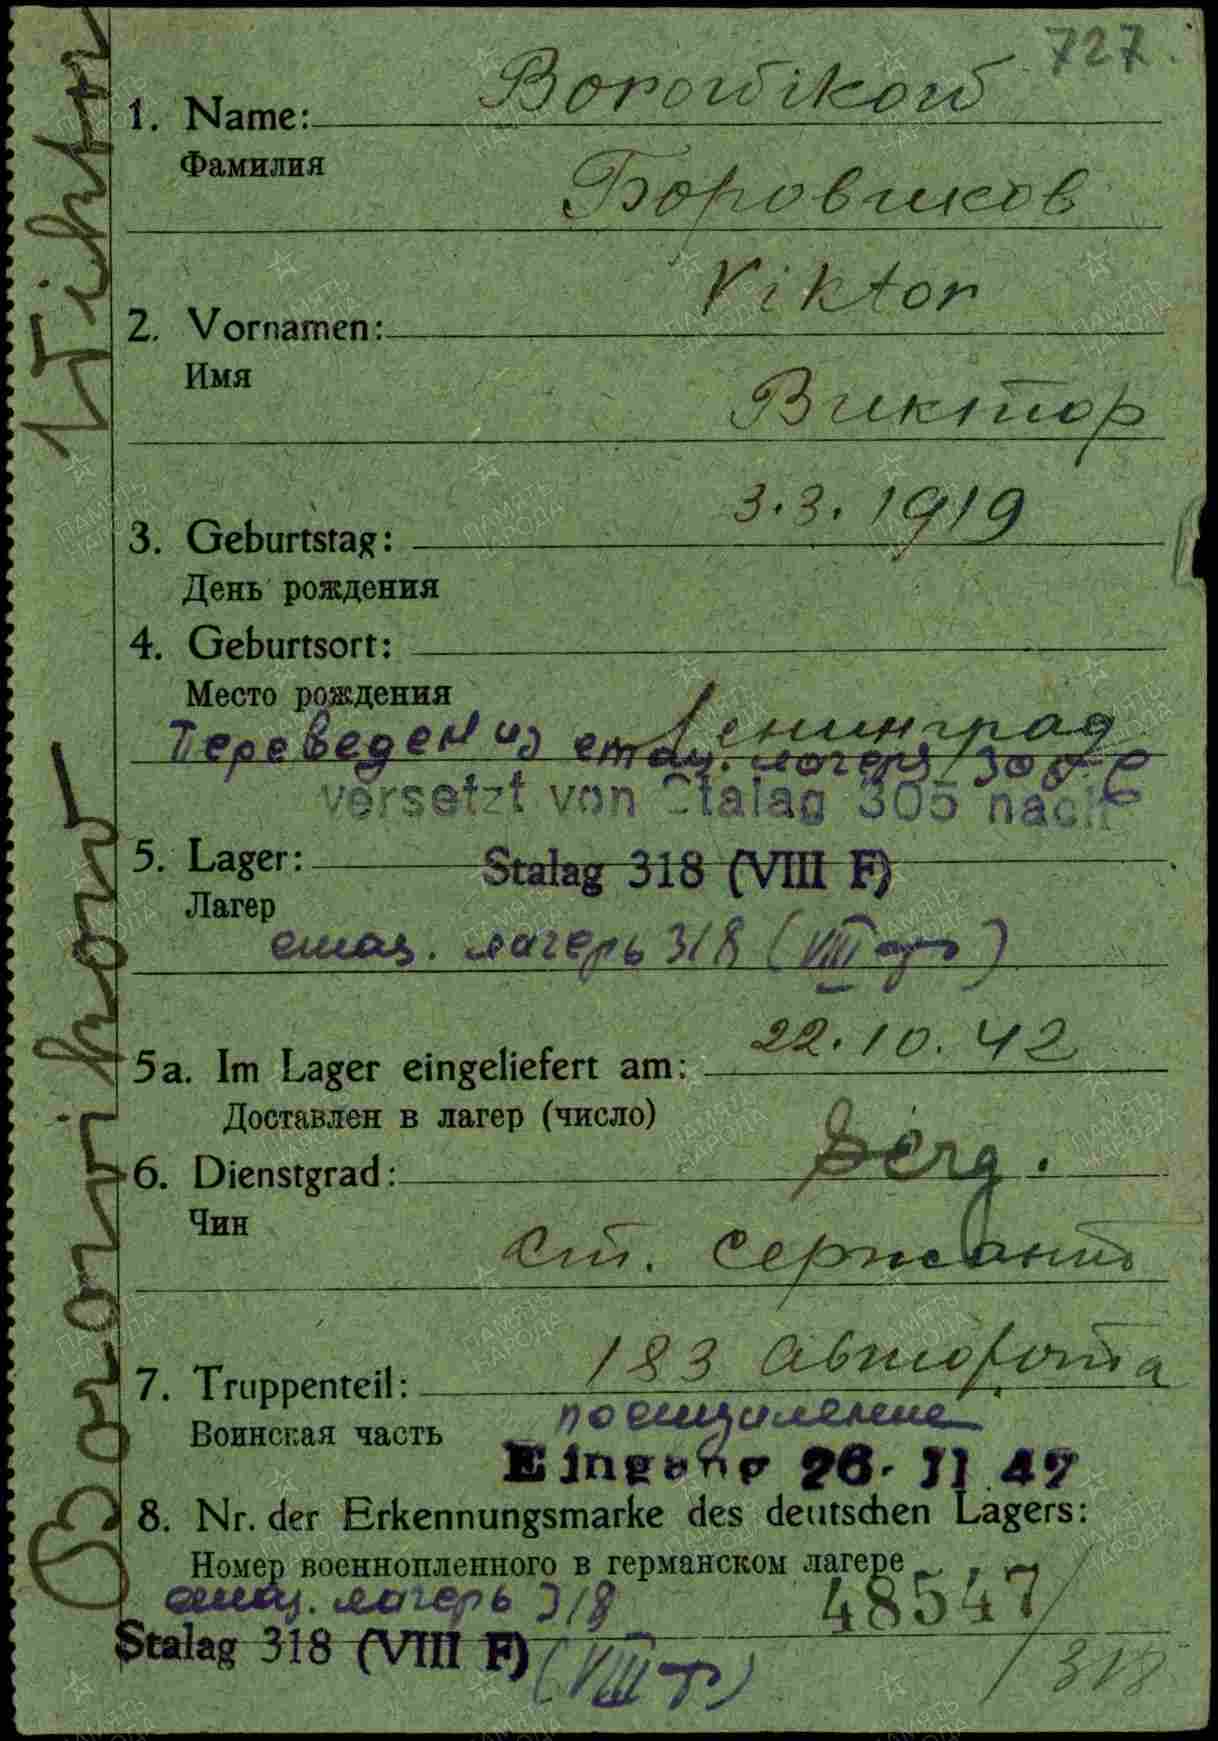 727
1. Name: Borowikow
Фамилия
Боровиков
2. Vornamen: Viktor
Имя
Виктор
3. Geburtstag: 3.3.1919
День рождения
4. Geburtsort:
Место рождения
Ленинград
Переведен из стац. лагеря 305 с
versetzt von Stalag 305 nach
5. Lager: Stalag 318 (VIII F)
Лагер
стац. лагерь 318 (VIII ф)
5a. Im Lager eingeliefert am: 22.10.42
Доставлен в лагер (число)
6. Dienstgrad: Serg.
Чин
ст. сержант
7. Truppenteil: 183 авторота
Воинская часть
поступление
Eingang 26. 11 42
8. Nr. der Erkennungsmarke des deutschen Lagers:
Номер военнопленного в германском лагере
48547/
стац. лагерь 318
Stalag 318 (VIII F) (VIII ф)
/318
Borowikow Viktor
ПАМЯТЬ НАРОДА